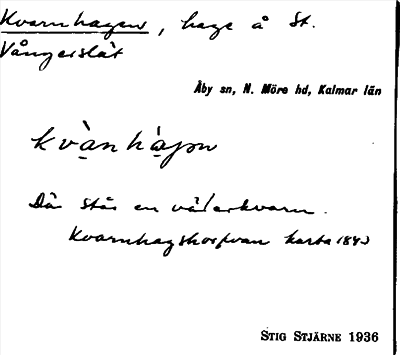 Kvarnhagen, hage å St.
Vångerslät
Åby sn, N. Möre hd, Kalmar län
kvàṇhàgən
Där står en väderkvarn.
Kvarnhagshorfvan karta 184
STIG STJÄRNE 1936